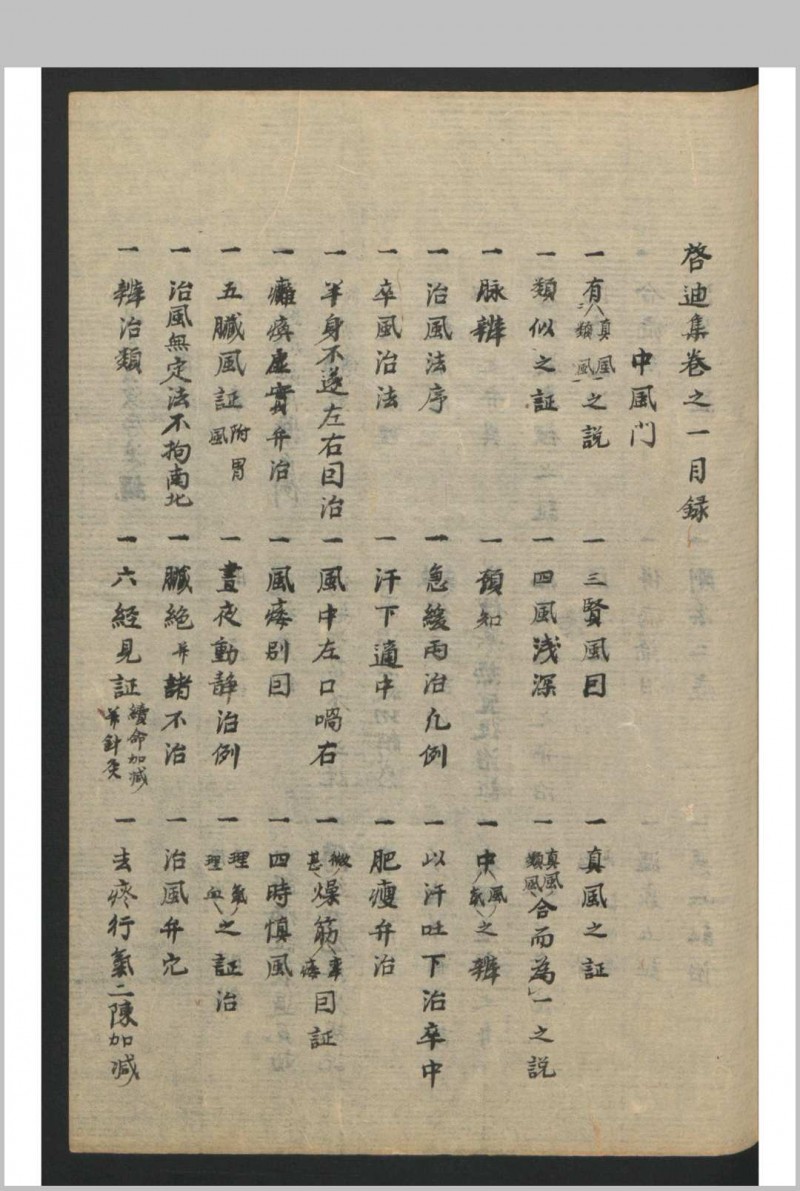 啓迪集卷之一目録
中風門
一 有真風類風之説 一 三賢風因 一 真風之証
一 類似之証 一 四風浅深 一 真風類風合而為一之説
一 脉辨 一 預知 一 中風氣之辨
一 治風法序 一 急緩両治凡例 一 以汗吐下治卒中
一 卒風治法 一 汗下適中 一 肥瘦弁治
一 半身不遂左右因治 一 風中左口喎右 一 微甚燥筋攣痿因証
一 癱瘓虚實弁治 一 風痿別因 一 四時慎風
一 五臓風証附胃風 一 晝夜動静治例 一 理氣理血之証治
一 治風無定法不拘南北 一 臓絶并諸不治 一 治風弁穴
一 辨治類 一 六經見証續命加减并針灸 一 去疼行氣二陳加减